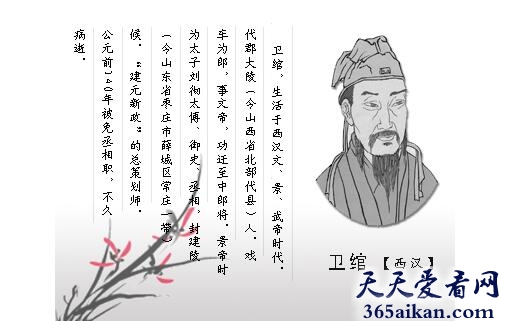 卫绾，生活于西汉文、景、武帝时代。
代郡大陵（今山西省北部代县）人。戏
车为郎，事文帝，功迁至中郎将。景帝时
为太子刘彻太傅、御史、丞相，封建陵
（今山东省枣庄市薛城区常庄一带）
候。“建元新政”的总策划师。
公元前140年被免丞相职，不久
病逝。
卫绾【西汉】
天天爱看网
365aikan.com